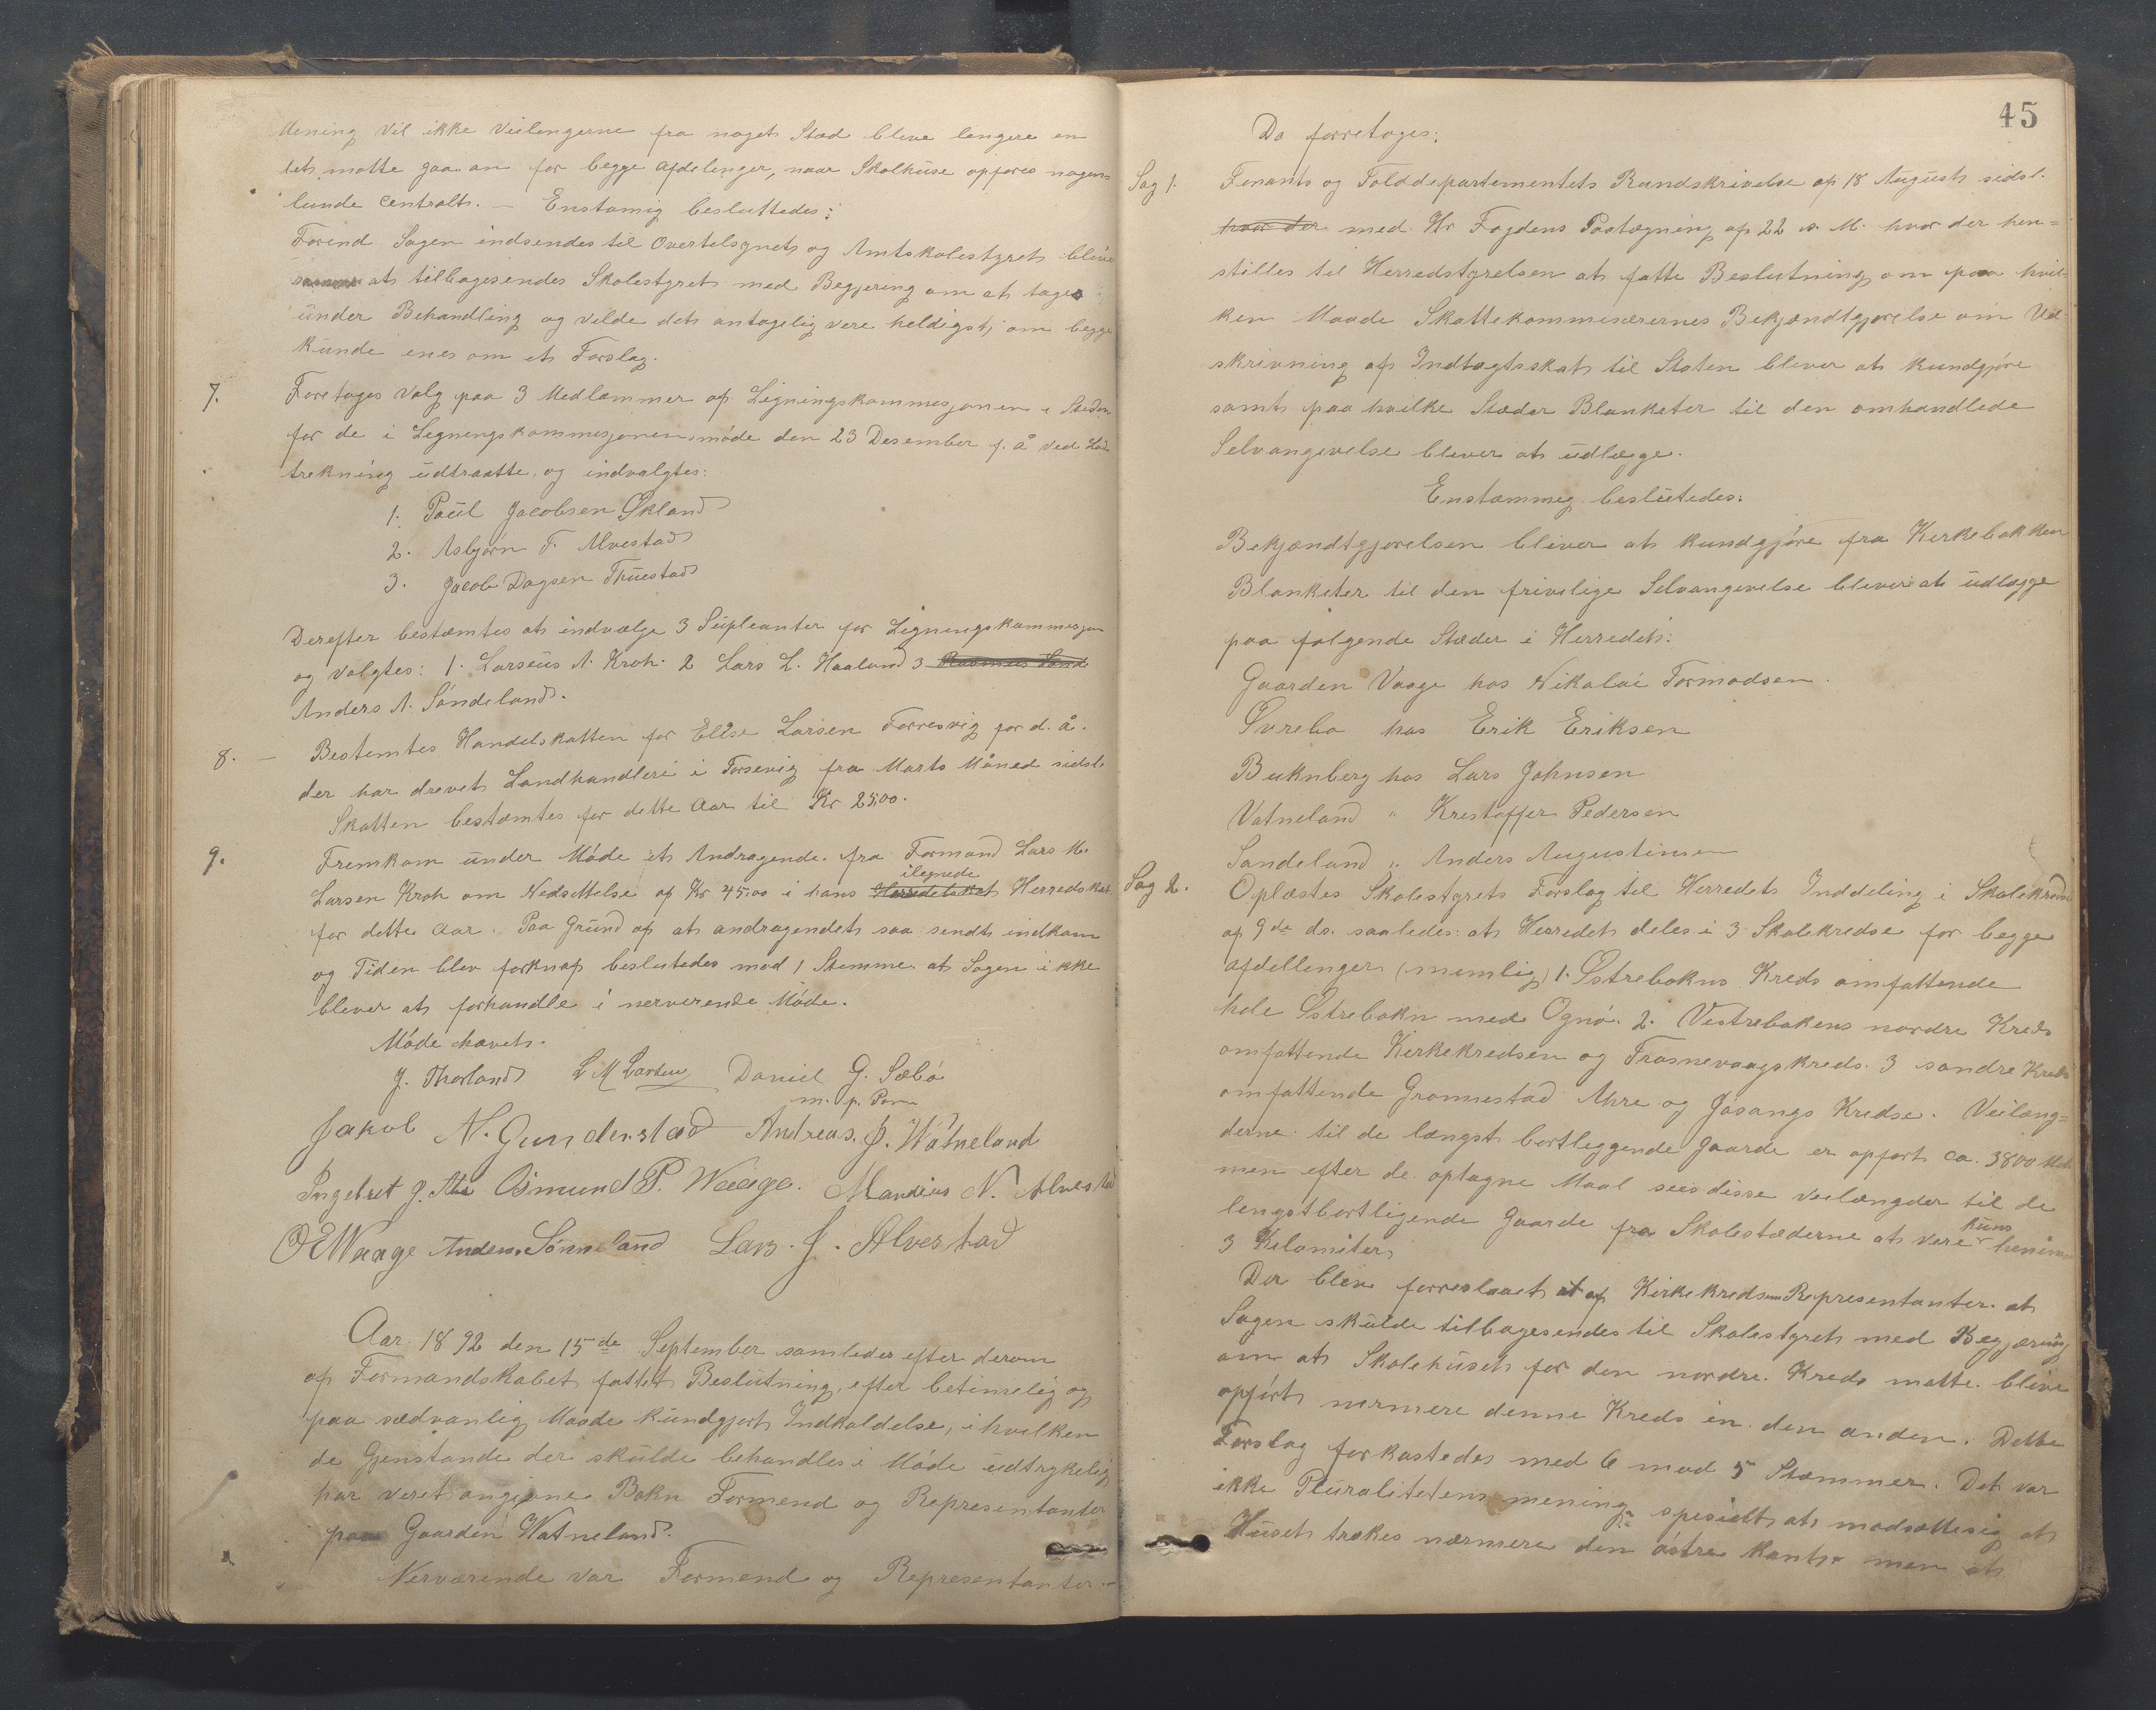 Mening vil ikke Veilengerne fra noget Stæd bleve lengere en
det matte gaa an for begge Afdelinger, naar Skolhuse opføres nogen-
lunde centralt. — Enstemig besluttedes:
Førend Sagen indsendes til Overtelsynet og Amtskolestyret bliver
at tilbagesendes Skolestyret med Begjering om at tages
under Behandling og vilde det antagelig vere heldigst, om begge
kunde enes om et Forslag.
7. Foretages Valg paa 3 Medlemmer af Ligningskommesjonen i Steden
for de i Legningskommesjonens møde den 23 Desember f. å ved Lod-
trekning udtraatte, og indvalgtes:
1. Paul Jacobsen Økland
2. Asbjørn T. Alvestad
3. Jacob Dagsen Thuestad
Derefter bestemtes at indvælge 3 Supleanter for Ligningskommesjon
og valgtes: 1. Larseus A. Kroh. 2 Lars L. Haaland 3 Rasmus Lande
Anders A. Søndeland.
8. — Bestemtes Handelskatten for Elise Larsen Forresvig for d. å.
der har drevet Landhandleri i Forsevig fra Marts Måned sidstl.
Skatten bestemtes for dette Aar til Kr 25,00.
9. Fremkom under Møde et Andragende fra Formand Lars M.
ilegnede
Larsen Kroh om Nedsettelse af Kr 45,00 i hans Herredskat Herredskat
for dette Aar. Paa Grund af at andragendet saa sendt indkom
og Tiden blev forknap besluttedes mod 1 Stemme at Sagen ikke
blever at forhandle i nerverende Møde.
Møde hævet.
J. Thorland L M Larsen Daniel G. Sæbø
m. p. Pen
Jakob N. Gunderstad Andreas. J. Watneland
Ingebret J. Are Osmund P. Waage. Mandius N. Alvestad
O E Waage Anders. Sønneland Lars. J. Alvestad
Aar 1892 den 15de September samledes efter derom
af Formandskabet fattet Beslutning, efter betimelig og
paa sædvanlig Maade kundgjort Indkaldelse, i hvilken
de Gjenstande der skulde behandles i Møde udtrykelig
har veret angivne Bokn Formend og Representanter
paa Gaarden Watneland.
Nerværende var Formend og Representanter.
45
Da forretages:
Sag 1. Fenants og Tolddepartementets Rundskrivelse af 18 August sidstl.
hvor der med Hr Fogdens Paategning af 22 s. M. hvor der hen=
stilles til Herredstyrelsen at fatte Beslutning om paa hvil-
ken Maade Skattekommesærernes Bekjændtgjørelse om Ud-
skrivning af Indtægtsskat til Staten blever at kundgjøre
samt paa hvilke Stæder Blanketer til den omhandlede
Selvangivelse blever at udlægge.
Enstæmmeg beslutedes:
Bekjændtgjørelsen bliver at kundgjøre fra Kerkebakken
Blanketer til den frivelige Selvangivelse blever at udlægge
paa følgende Stæder i Herredet:
Gaarden Vaage hos Nikolai Tormodsen.
Øvrebø hos Erik Eriksen
Buknberg hos Lars Johnsen
Vatneland " Krestoffer Pedersen
Sandeland " Anders Augustinsen
Sag 2. Oplæstes Skolestyrets Forslag til Herredets Inddeling i Skolekredse
af 9de ds. saaledes: at Herredet deles i 3 Skolekredse for begge
afdellinger (nemlig) 1. Østrebokns Kreds omfattende
hele Østrebokn med Ognø. 2. Vestrebokens nordre Kreds
omfattende Kerkekredsen og Trosnevaagskreds. 3 søndre Kreds
omfattende Grønnestad Are og Jøsangs Kredse. Veilæng=
derne til de længst bortleggende gaarde er opført ca. 3800 Met.
men efter de optagne Maal sees disse veilængder til de
lengstbortligende Gaarde fra Skolestæderne at vere henimod
kuns
3 Kelomiter,
Der bleve forreslaaet at af Kirkekredsens Representanter at
Sagen skulde tilbagesendes til Skolestyret med Begjæring
om at Skolehuset for den nordre Kreds matte blive
opført nermere denne Kreds en den anden. Dette
Forslag forkastedes med 6 mod 5 Stæmmer. Det var
ikke Pluralitetens mening spesielt at modsættesig at
Huset trækes nærmere den østre kant men at